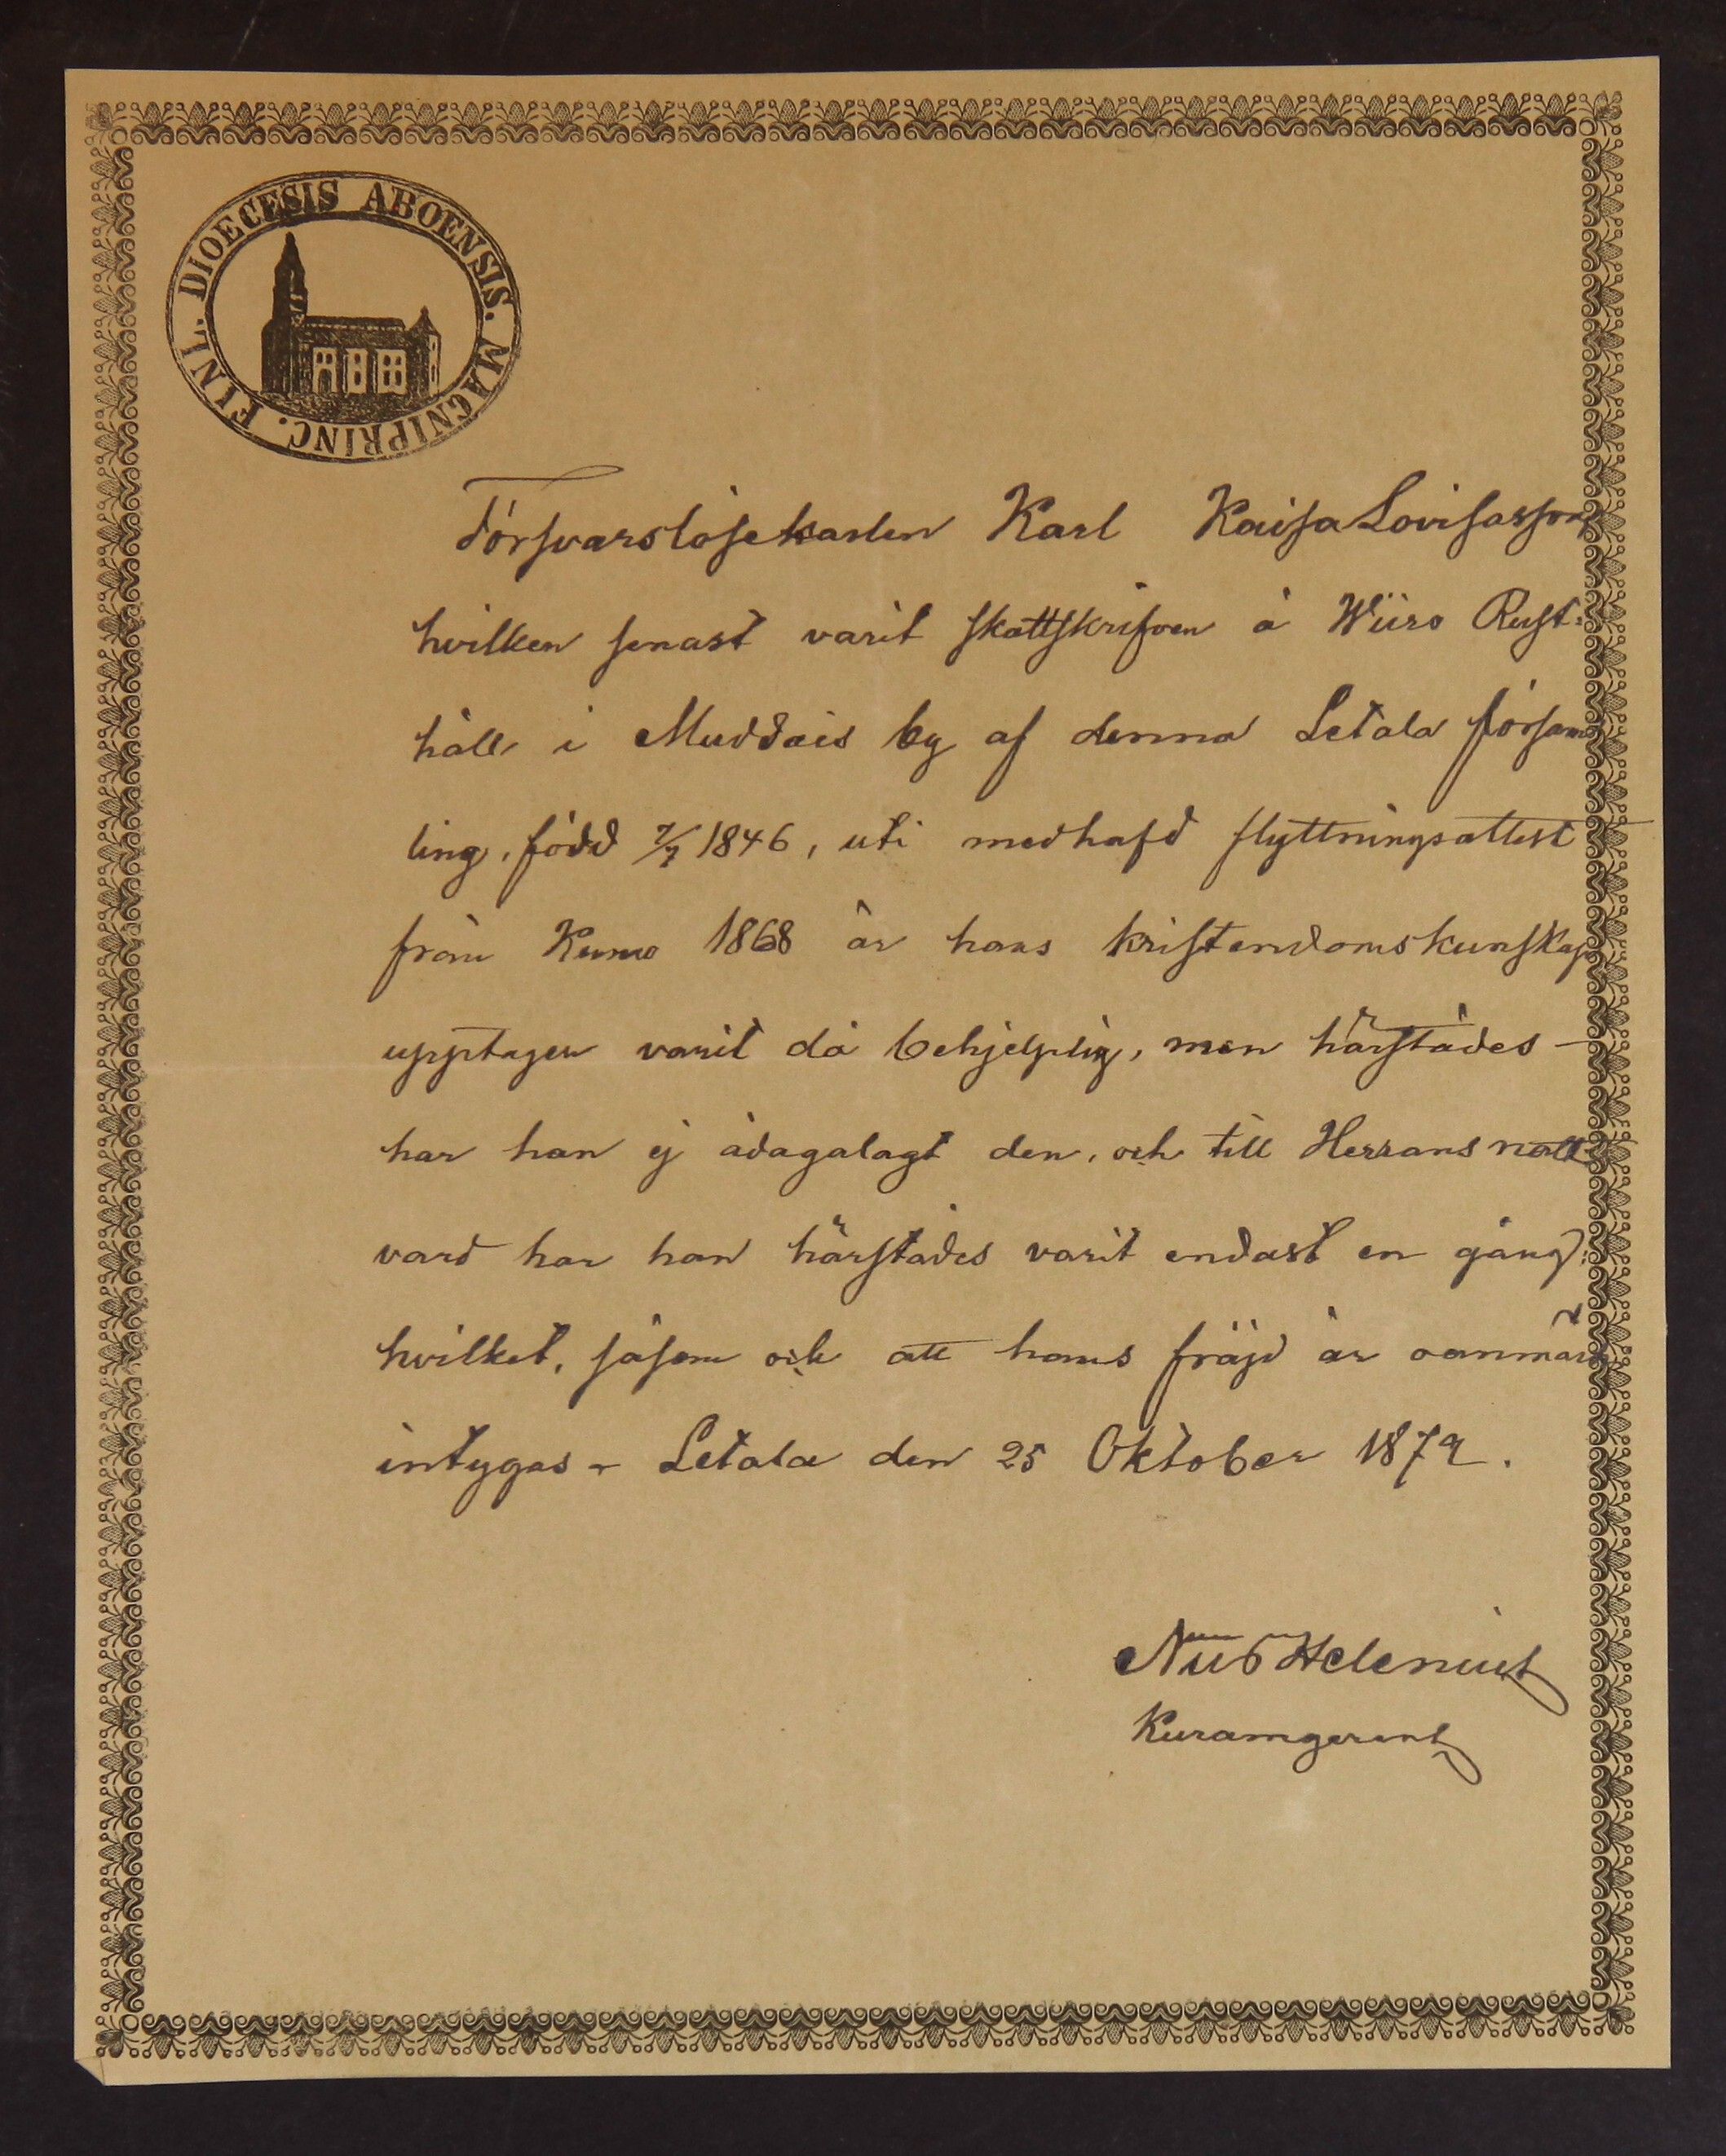 DIOECESIS ABOENSIS. MAGNIPRINC. FINL.
Försvarslöse karlen Karl Kaisa Lovisasson
hvilken senast varit skattskrifven å Wiiro Rust=
håll i Muddais by af denna Letala försam
ling, född 7/7 1846, uti medhafd flyttningsattest
från Kumo 1868 är hans kristendomskunskap
upptagen varit då behjelplig, men härstädes -
har han ej ådagalagt den, och till Herrans natt=
vard har han härstädes varit endast en gång:
hvilket, såsom och att hans fräjd är oanmärkt
intygas - Letala den 25 Oktober 1872.
Nils Helenius
Kuramgerent